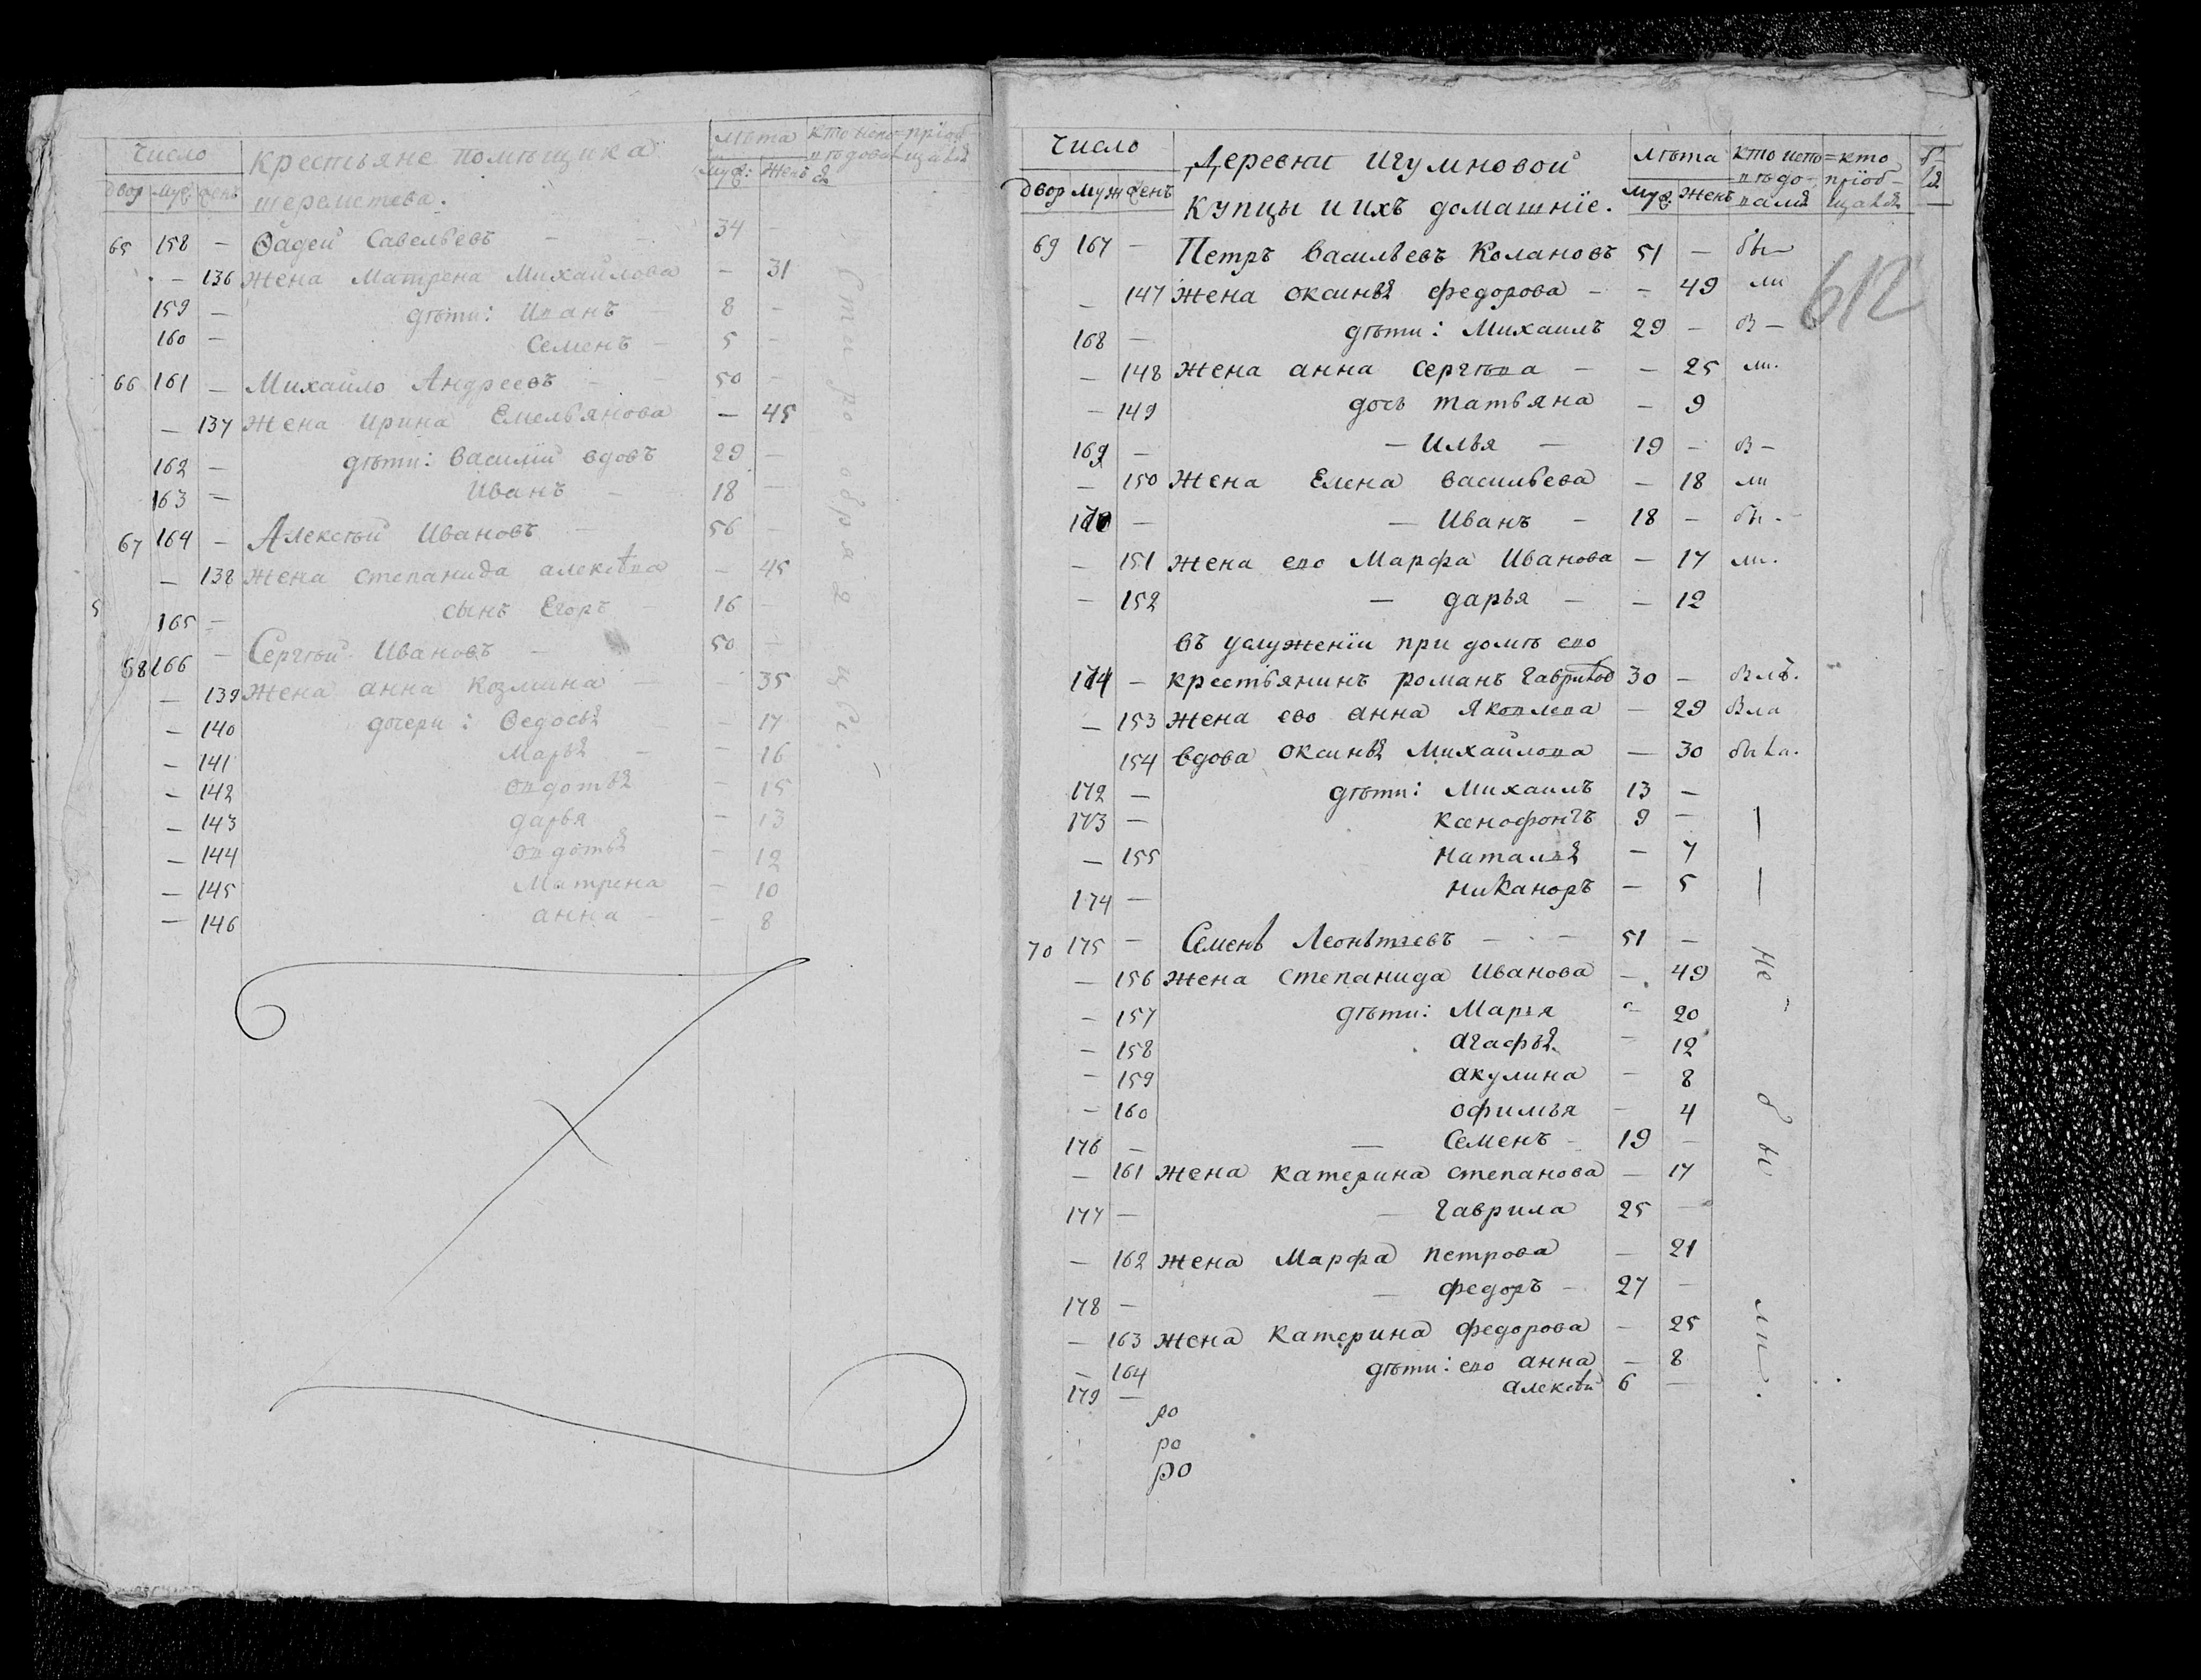 Число
Крестьяне помѣщика
шереметева.
лѣта
кто испо=
вѣдовал
пріоб
щался
двор муж: женъ
муж: женъ
65 158 — Ѳадей Савельевъ — 34 —
— 136 жена матрена Михайлова — 31
159 — дѣти: Иванъ 8 —
160 — Семенъ — 5 —
66 161 — Михайло Андреевъ — 50 —
— 137 жена ирина Емельянова — 45
162 — дѣти: василій вдовъ 29 —
163 — Иванъ — 18 —
67 164 — Алексѣй Ивановъ — 56 —
— 138 жена степанида алексѣва — 45
165 — сынъ Егоръ — 16 —
68 166 — Сергѣй Ивановъ — 50 —
— 139 жена анна козмина — — 35
— 140 дочери: Ѳедосья — 17
— 141 марья — — 16
— 142 овдотья — 15
— 143 дарья — 13
— 144 овдотья — 12
— 145 Матрена — 10
— 146 анна — — 8
Старо обрядцы.
Число
Деревни игумновой
купцы и ихъ домашніе.
лѣта
кто испо=
вѣдо-
вался
кто
пріоб-
щался
двор муж женъ
муж. женъ
69 167 — Петръ васильевъ Колановъ 51 — бы—
— 147 жена оксинья федорова — — 49 ли
168 — дѣти: Михаилъ 29 — б —
— 148 жена анна сергѣва — — 25 ли.
— 149 дочь татьяна — 9
169 — — Илья — 19 — б —
— 150 жена Елена васильева — 18 ли
170 — — Иванъ — 18 — бы —
— 151 жена ево Марфа Иванова — 17 ли.
— 152 — дарья — — 12
въ услуженіи при домѣ ево
171 — крестьянинъ романъ Гаврилов 30 — былъ.
— 153 жена ево анна Яковлева — 29 была
154 вдова оксинья михайлова — 30 была.
172 — дѣти: Михаилъ 13 —
173 — ксенофонтъ 9 —
— 155 наталья — 7
174 — никаноръ — 5
70 175 — Семенъ Леонтьевъ — — 51 —
— 156 жена степанида Иванова — 49
— 157 дѣти: Марья — 20
— 158 агафья — 12
— 159 акулина — 8
— 160 офимья — 4
176 — — Семенъ — 19 —
— 161 жена катерина степанова — 17
177 — — гаврила 25 —
— 162 жена Марфа петрова — 21
178 — — федоръ — 27 —
— 163 жена катерина федорова — 25
— 164 дѣти: ево анна — 8
179 — алексѣй 6 —
не бы ли.
ро
ро
ро
612